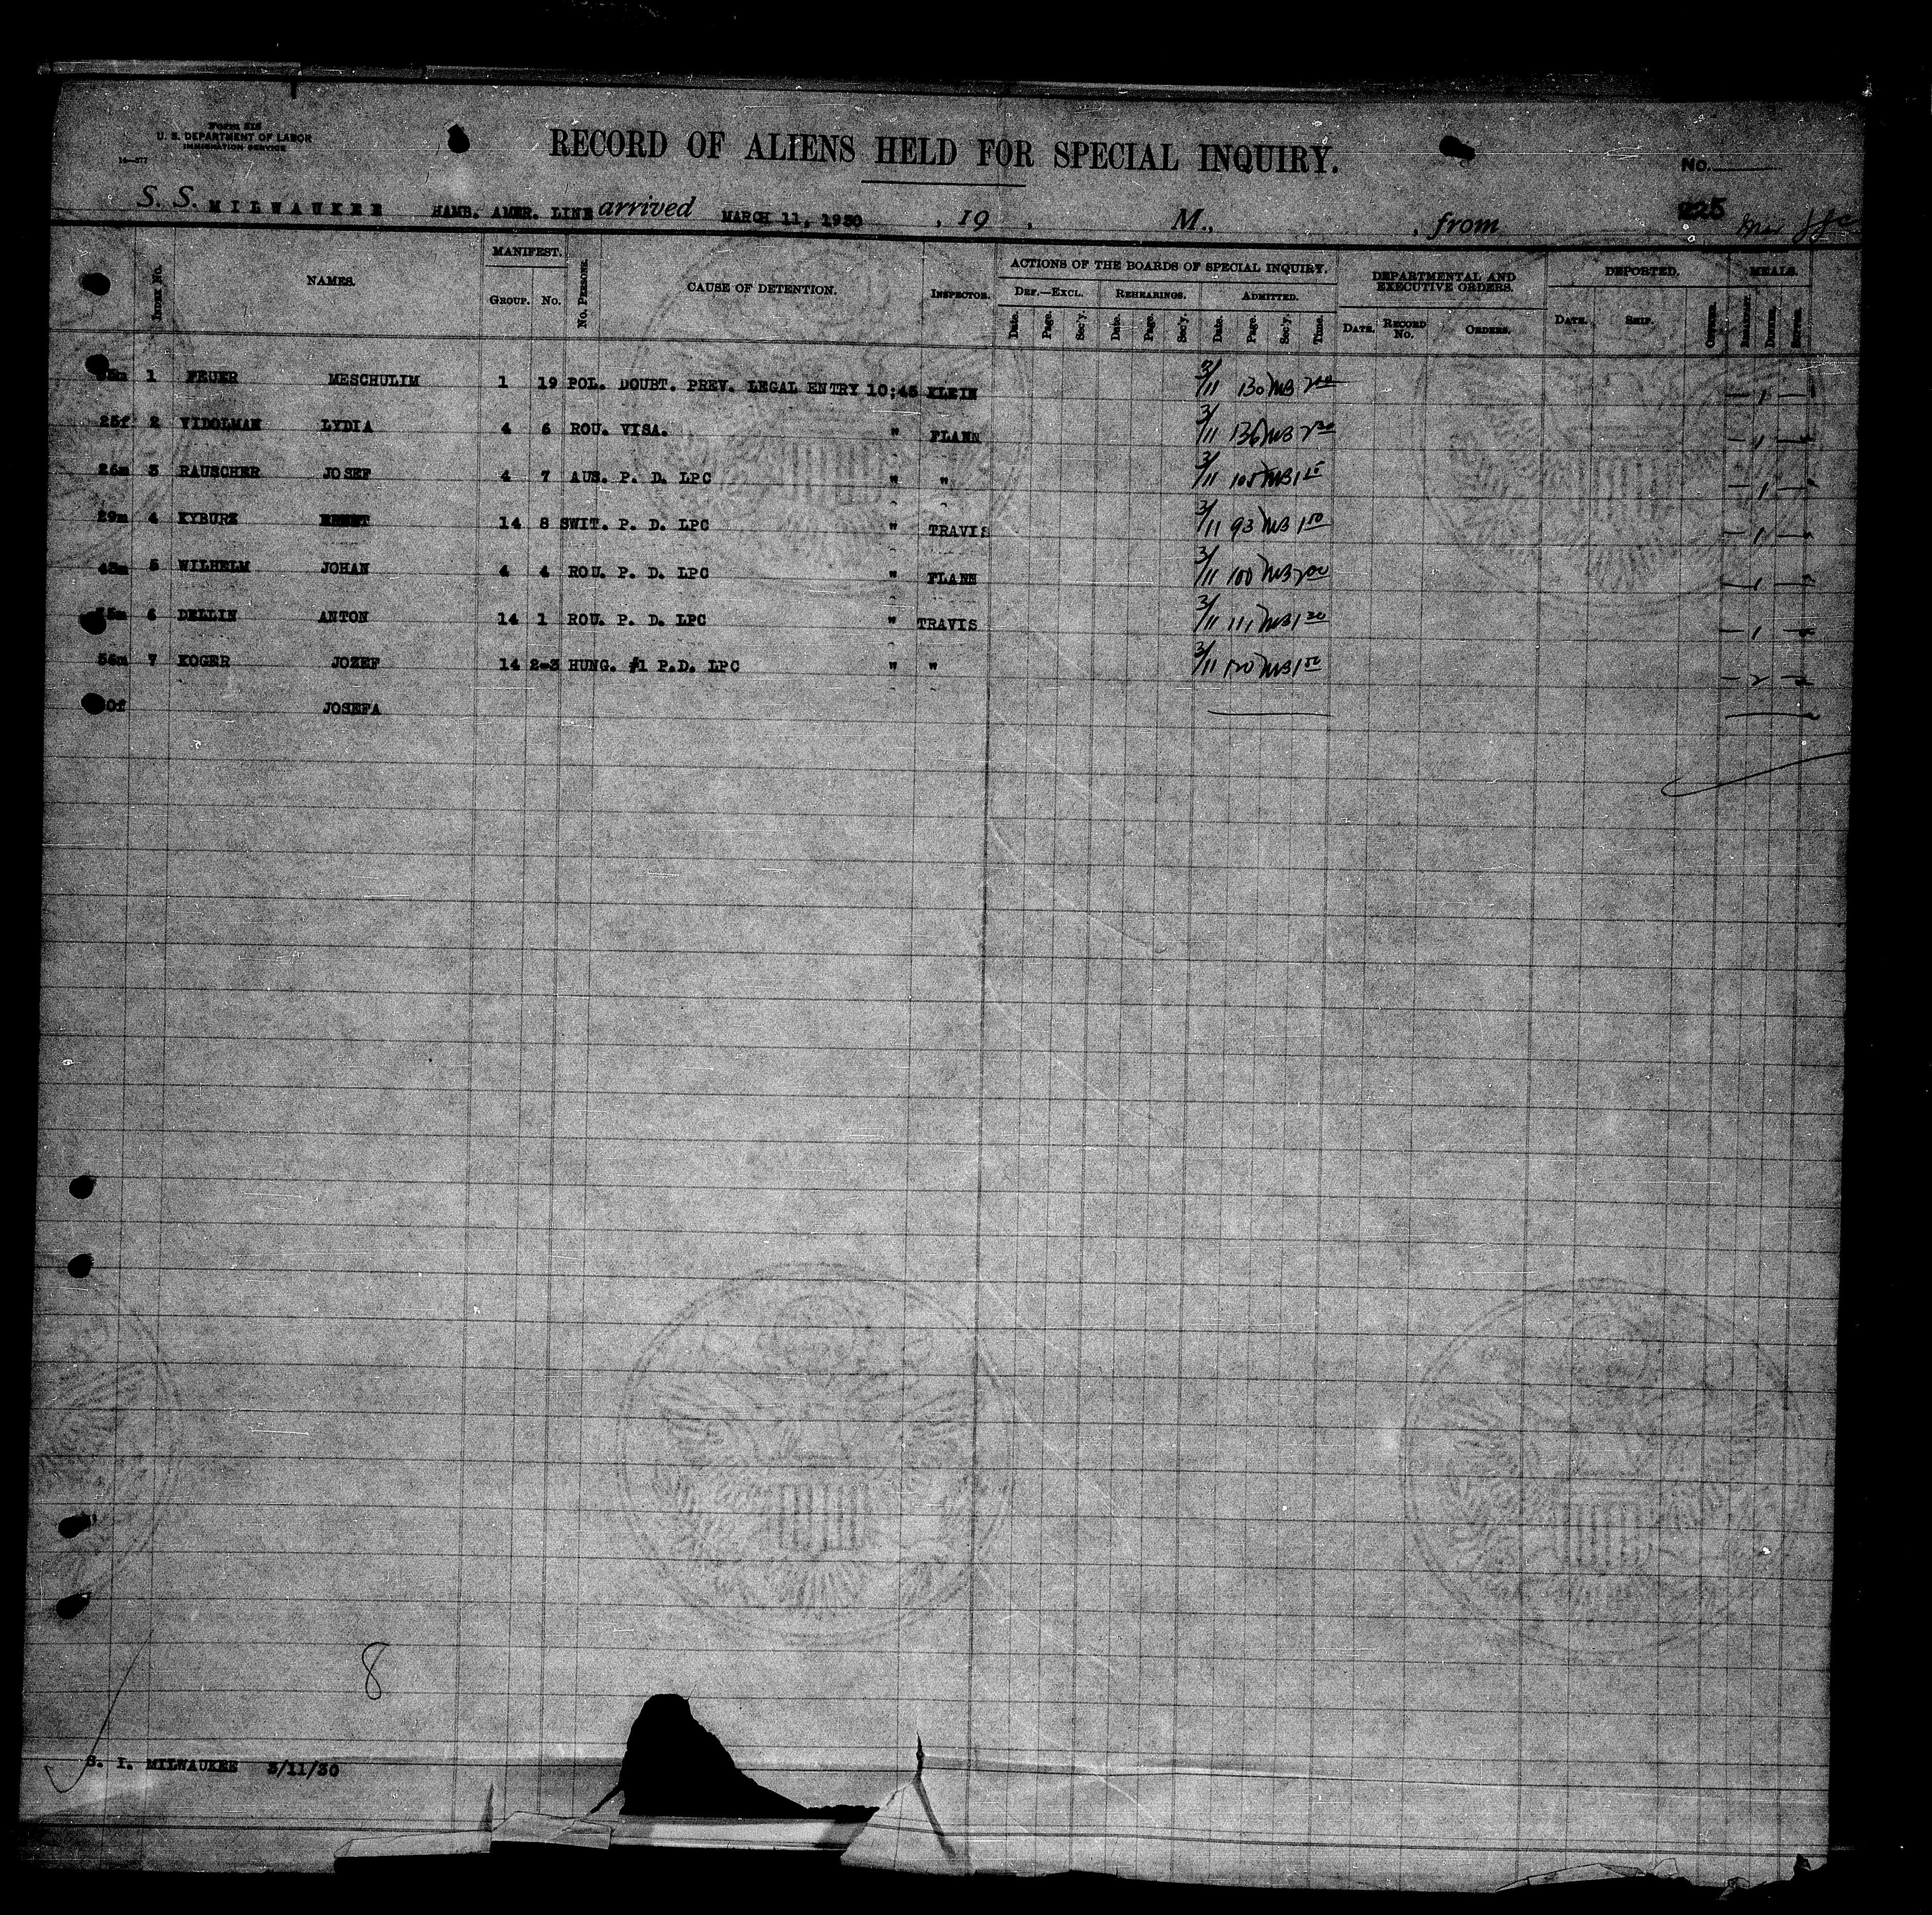 Form 515
U. S. DEPARTMENT OF LABOR
IMMIGRATION SERVICE
14—577
RECORD OF ALIENS HELD FOR SPECIAL INQUIRY.
No.
S. S. MILWAUKEE HAMB. AMER. LINE arrived MARCH 11, 1930 , 19 , M., , from
225
INDEX NO. NAMES. MANIFEST. GROUP. NO. NO. PERSONS. CAUSE OF DETENTION. INSPECTOR.
ACTIONS OF THE BOARDS OF SPECIAL INQUIRY. DEF.—EXCL. Date. Page. Sec'y. REHEARINGS. Date. Page. Sec'y. ADMITTED. Date. Page. Sec'y. Time.
DEPARTMENTAL AND EXECUTIVE ORDERS. DATE. RECORD NO. ORDERS.
DEPORTED. DATE. SHIP. MEALS. BREAKFAST. DINNER. SUPPER.
1 FEUER MESCHULIM 1 19 POL. DOUBT. PREV. LEGAL ENTRY 10:45 KLEIN 3/11 130 MB 2 00 — 1 —
25f 2 VIDOLMAN LYDIA 4 6 ROU. VISA. " FLANN 3/11 136 MB 2 30 — 1 —
26m 3 RAUSCHER JOSEF 4 7 AUS. P. D. LPC " " 3/11 105 MB 1 15 — 1 —
29m 4 KYBURZ 14 8 SWIT. P. D. LPC " TRAVIS 3/11 93 MB 1 00 — 1 —
5 WILHELM JOHAN 4 4 ROU. P. D. LPC " FLANN 3/11 100 MB 2 00 — 1 —
6 DELLIN ANTON 14 1 ROU. P. D. LPC " TRAVIS 3/11 111 MB 1 30 — 1 —
56m 7 KOGER JOZEF 14 2-3 HUNG. #1 P.D. LPC " " 3/11 120 MB 1 50 — 2 —
JOSEFA
8
S. I. MILWAUKEE 3/11/30